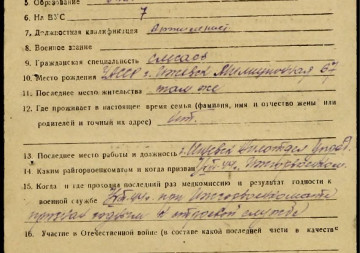 5. Образование
6. На ВУС 7
7. Должностная квалификация
8. Военное звание
9. Гражданская специальность слесарь
10. Место рождения УАССР г. Ижевск Милиционная 67
11. Последнее место жительства там же
12. Где проживает в настоящее время семья (фамилия, имя и отчество жены или
родителей и точный их адрес)
13. Последнее место работы и должность г. Ижевск
14. Каким райгорвоенкоматом и когда призван
15. Когда и где проходил последний раз медкомиссию и результат годности к
военной службе при
годным к строевой службе
16. Участие в Отечественной войне (в составе какой последней части и в качестве